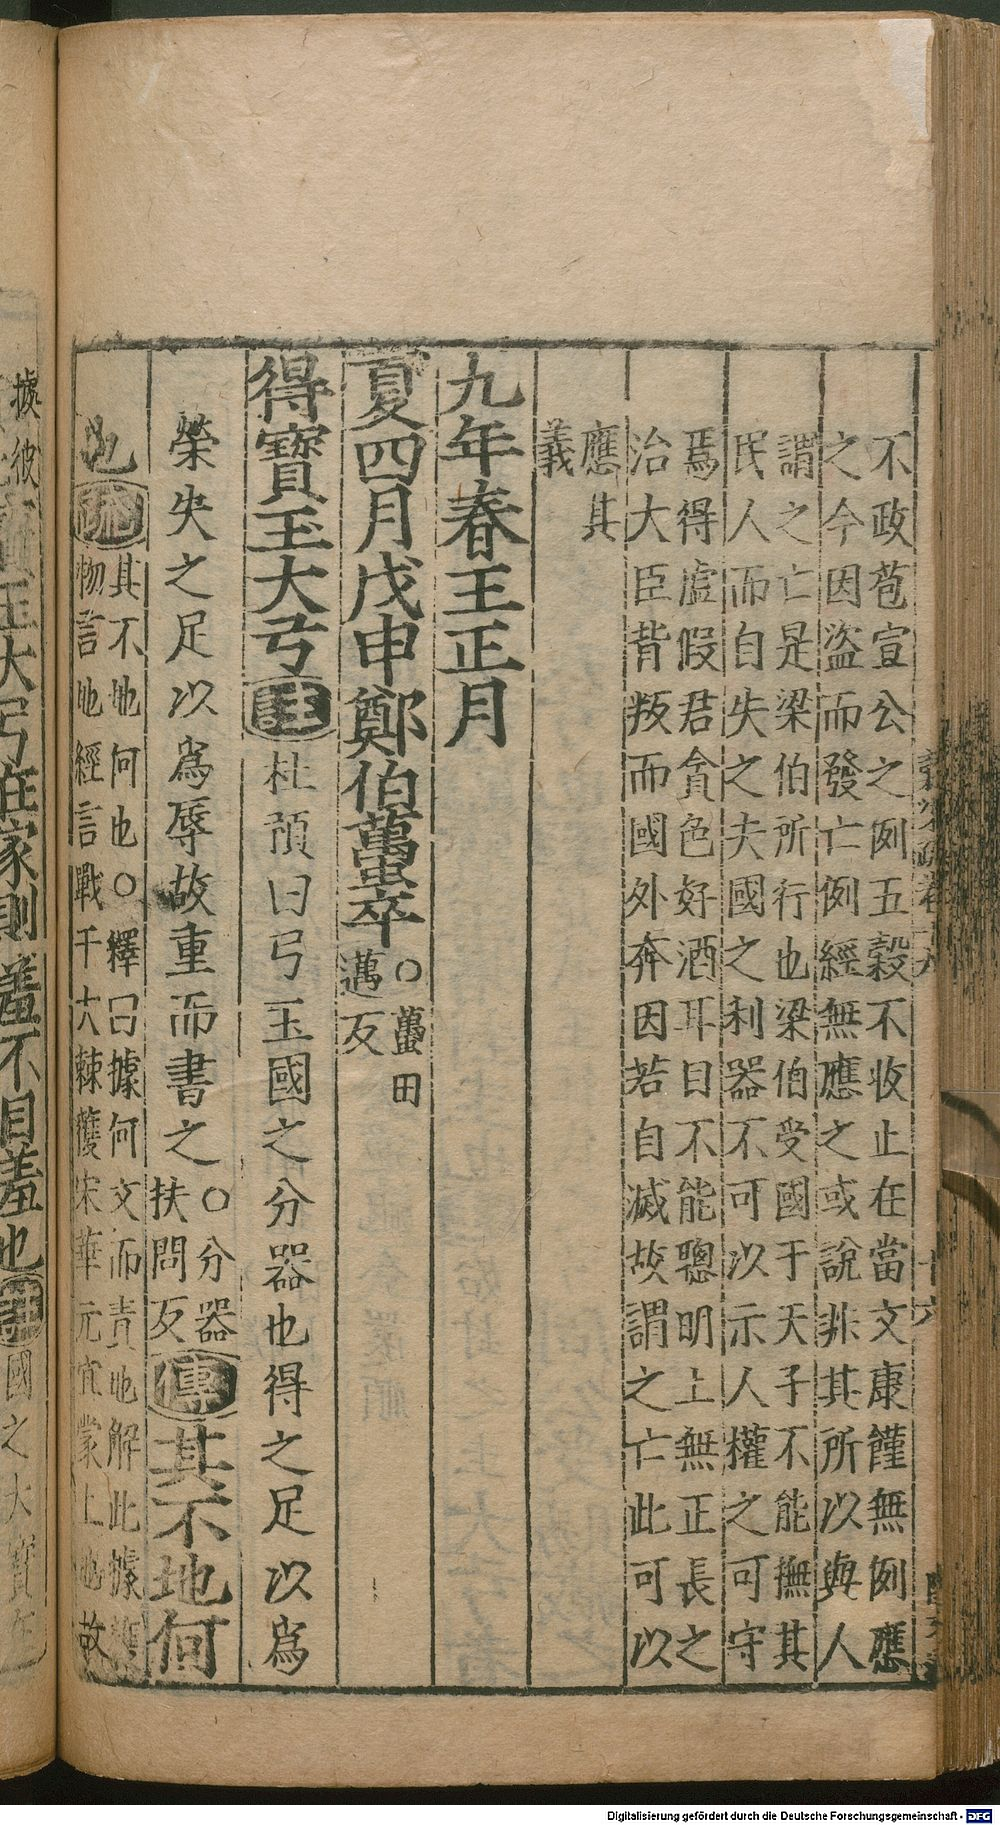 不政苞宣公之例五穀不收止在當文康饉無例應
之今因盜而發亡例經無應之或說非其所以與人
謂之亡是梁伯所行也梁伯受國于天子不能撫其
民人而自失之夫國之利器不可以示人權之可守
焉得虛假君貪色好酒耳目不能聰明上無正長之
治大臣背叛而國外奔因若自滅故謂之亡此可以
應其
義
九年春王正月
夏四月戊申鄭伯蠆卒
○蠆田
邁反
得寶玉大弓註杜預曰弓玉國之分器也得之足以爲
榮失之足以爲辱故重而書之
○分器
扶問反
傳其不地何
也疏
其不地何也○釋曰據何文而責地解此據
物言地經言戰于大棘獲宋華元宜蒙上地故
據彼
玉大弓在家則羞不目羞也
國之大寶在
Digitalisierung gefördert durch die Deutsche Forschungsgemeinschaft - DFG